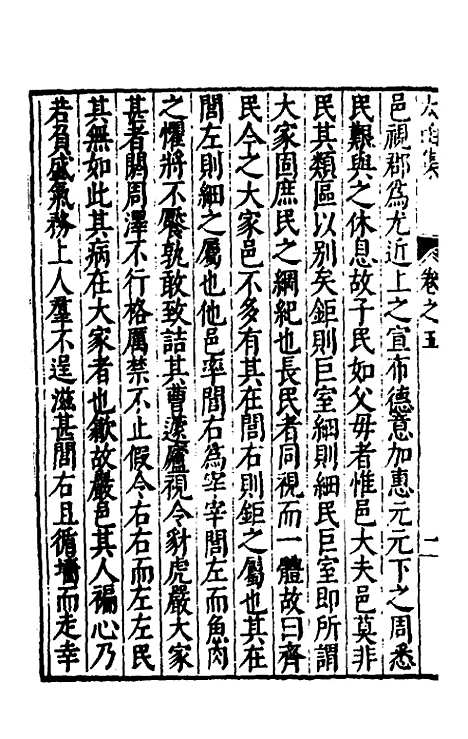 太函集 卷之五 二
邑視郡為尤近上之宣布德意加惠元元下之周悉
民艱與之休息故子民如父母者惟邑大夫邑莫非
民其類區以別矣鉅則巨室細則細民巨室即所謂
大家固庶民之綱紀也長民者同視而一體故曰齊
民今之大家邑不多有其在閭右則鉅之屬也其在
閭左則細之屬也他邑率閭右為宰宰閭左而魚肉
之懼將不饜孰敢致詰其曹蘧廬視令豺虎嚴大家
甚者閼周澤不行格厲禁不止假令右右而左左民
其無如此其病在大家者也歙故嚴邑其人褊心乃
若負盛氣務上人羣不逞滋甚閭右且循墻而走幸